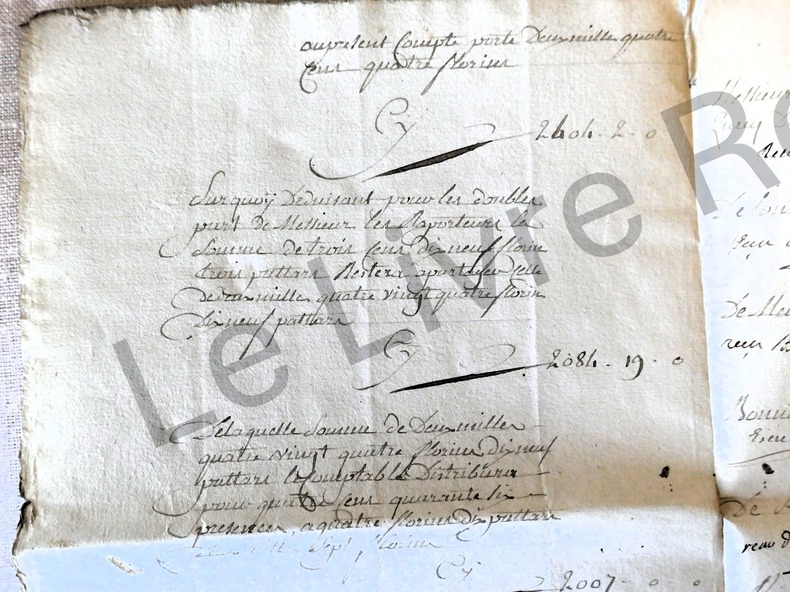 au present Compte porte Deux mille quatre
Cens quatre florins
Cy 2404 - 2 - 0
Surquoÿ Deduisant pour les doubles
part De Messieur les Raporteurs la
Somme de trois Cens dix neuf florin
trois pattars Restera a partager celle
De deux mille quatre vingt quatre florin
dix neuf pattars
Cy 2084 - 19 - 0
De laquelle Somme de Deux mille
quatre vingt quatre florins dix neuf
pattars le Comptable Distribuera
pour quatre Cens quarante six
presences, a quatre florins dix pattars
Sept florins
Cy 2007 - 0 - 0
Messieur
De Mes
reçu
Le Livre Re